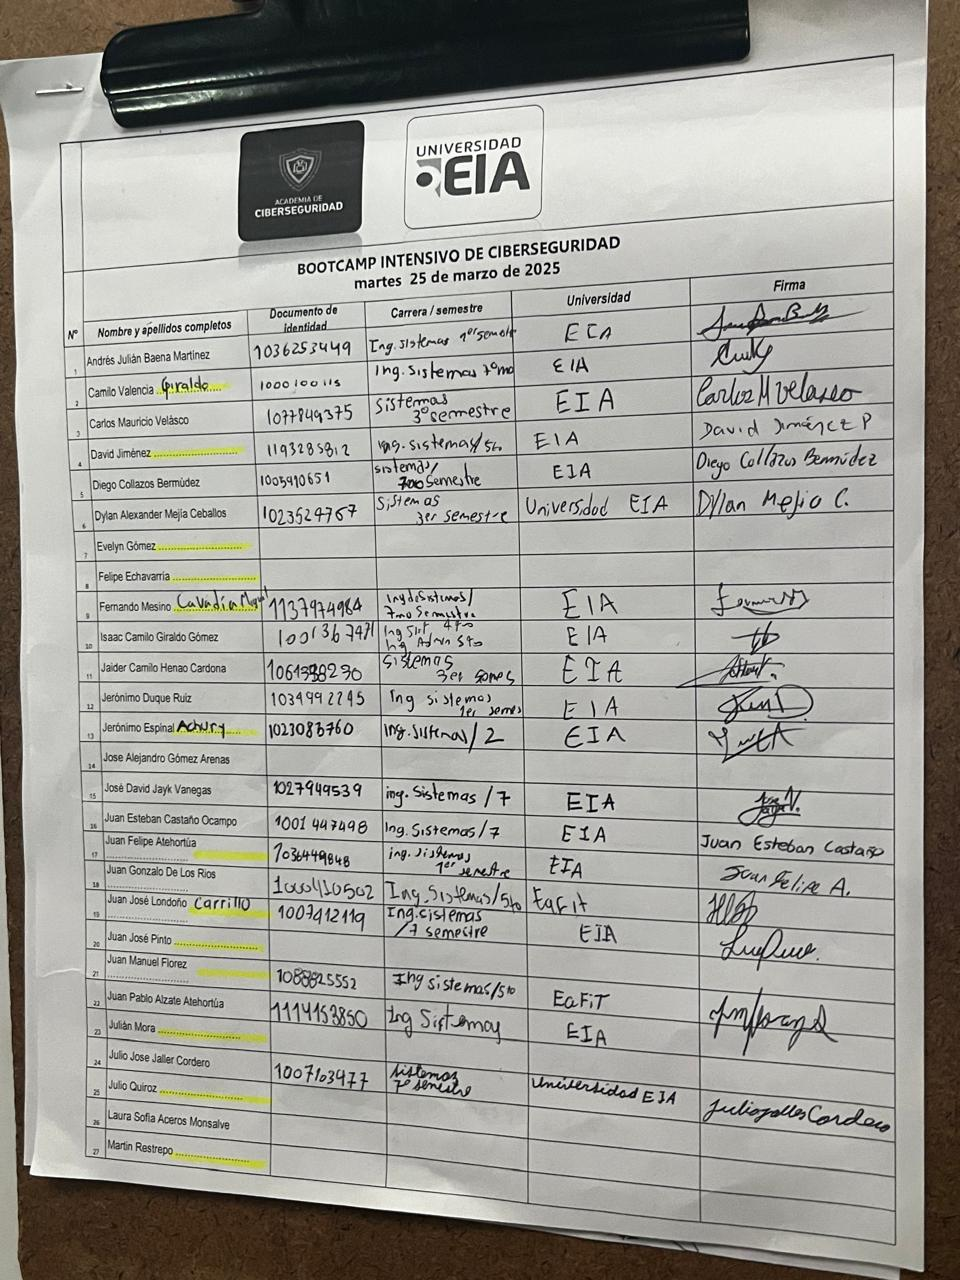 ACADEMIA DE
CIBERSEGURIDAD
UNIVERSIDAD
EIA
BOOTCAMP INTENSIVO DE CIBERSEGURIDAD
martes 25 de marzo de 2025
N° Nombre y apellidos completos Documento de identidad Carrera / semestre Universidad Firma
1 Andrés Julián Baena Martinez 1036253449 Ing. sistemas 1er semestre EIA
2 Camilo Valencia Giraldo 1000100115 Ing. Sistemas 7mo EIA
3 Carlos Mauricio Velásco 1077849375 Sistemas 3° semestre EIA Carlos M Velasco
4 David Jiménez 1193285812 Ing. Sistemas/5to EIA David Jiménez P
5 Diego Collazos Bermúdez 1005910651 sistemas/ 7mo Semestre EIA Diego Collazos Bermúdez
6 Dylan Alexander Mejía Ceballos 1023524767 Sistemas 3er semestre Universidad EIA Dylan Mejia C.
7 Evelyn Gómez
8 Felipe Echavarría
9 Fernando Mesino Cavadía Miguel 1137974984 Ing de Sistemas/ 7mo Semestre EIA
10 Isaac Camilo Giraldo Gómez Ing Sist 4to Ing Admn 5to EIA
11 Jaider Camilo Henao Cardona Sistemas 3er EIA
12 Jerónimo Duque Ruiz 1034992245 Ing sistemas 1er semes EIA
13 Jerónimo Espinal Achury 1023083760 Ing. Sistemas/2 EIA
14 Jose Alejandro Gómez Arenas
15 José David Jayk Vanegas 1027949539 ing. Sistemas /7 EIA
16 Juan Esteban Castaño Ocampo 1001447498 Ing. Sistemas/7 EIA Juan Esteban Castaño
17 Juan Felipe Atehortúa 1036449848 ing. sistemas 1er semestre EIA Juan Felipe A.
18 Juan Gonzalo De Los Rios 1000410502 Ing. Sistemas/5to Eafit
19 Juan José Londoño Carrillo 1007412119 Ing. sistemas /7 semestre EIA
20 Juan José Pinto
21 Juan Manuel Florez 1088825552 Ing sistemas/5to EaFiT
22 Juan Pablo Alzate Atehortúa 1114153850 Ing Sistemas EIA
23 Julián Mora
24 Julio Jose Jaller Cordero 1007103477 sistemas 7° semestre Universidad EIA Julio Jaller Cordero
25 Julio Quiroz
26 Laura Sofia Aceros Monsalve
27 Martin Restrepo